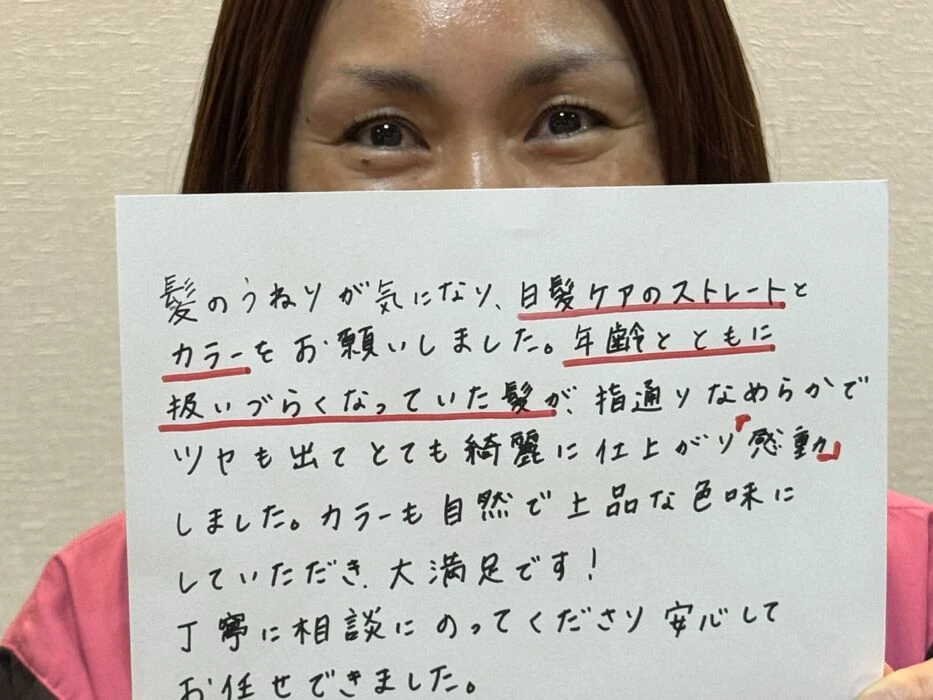 髪のうねりが気になり、白髪ケアのストレートと
カラーをお願いしました。年齢とともに
扱いづらくなっていた髪が、指通りなめらかで
ツヤも出てとても綺麗に仕上がり「感動」
しました。カラーも自然で上品な色味に
していただき、大満足です！
丁寧に相談にのってくださり安心して
お任せできました。